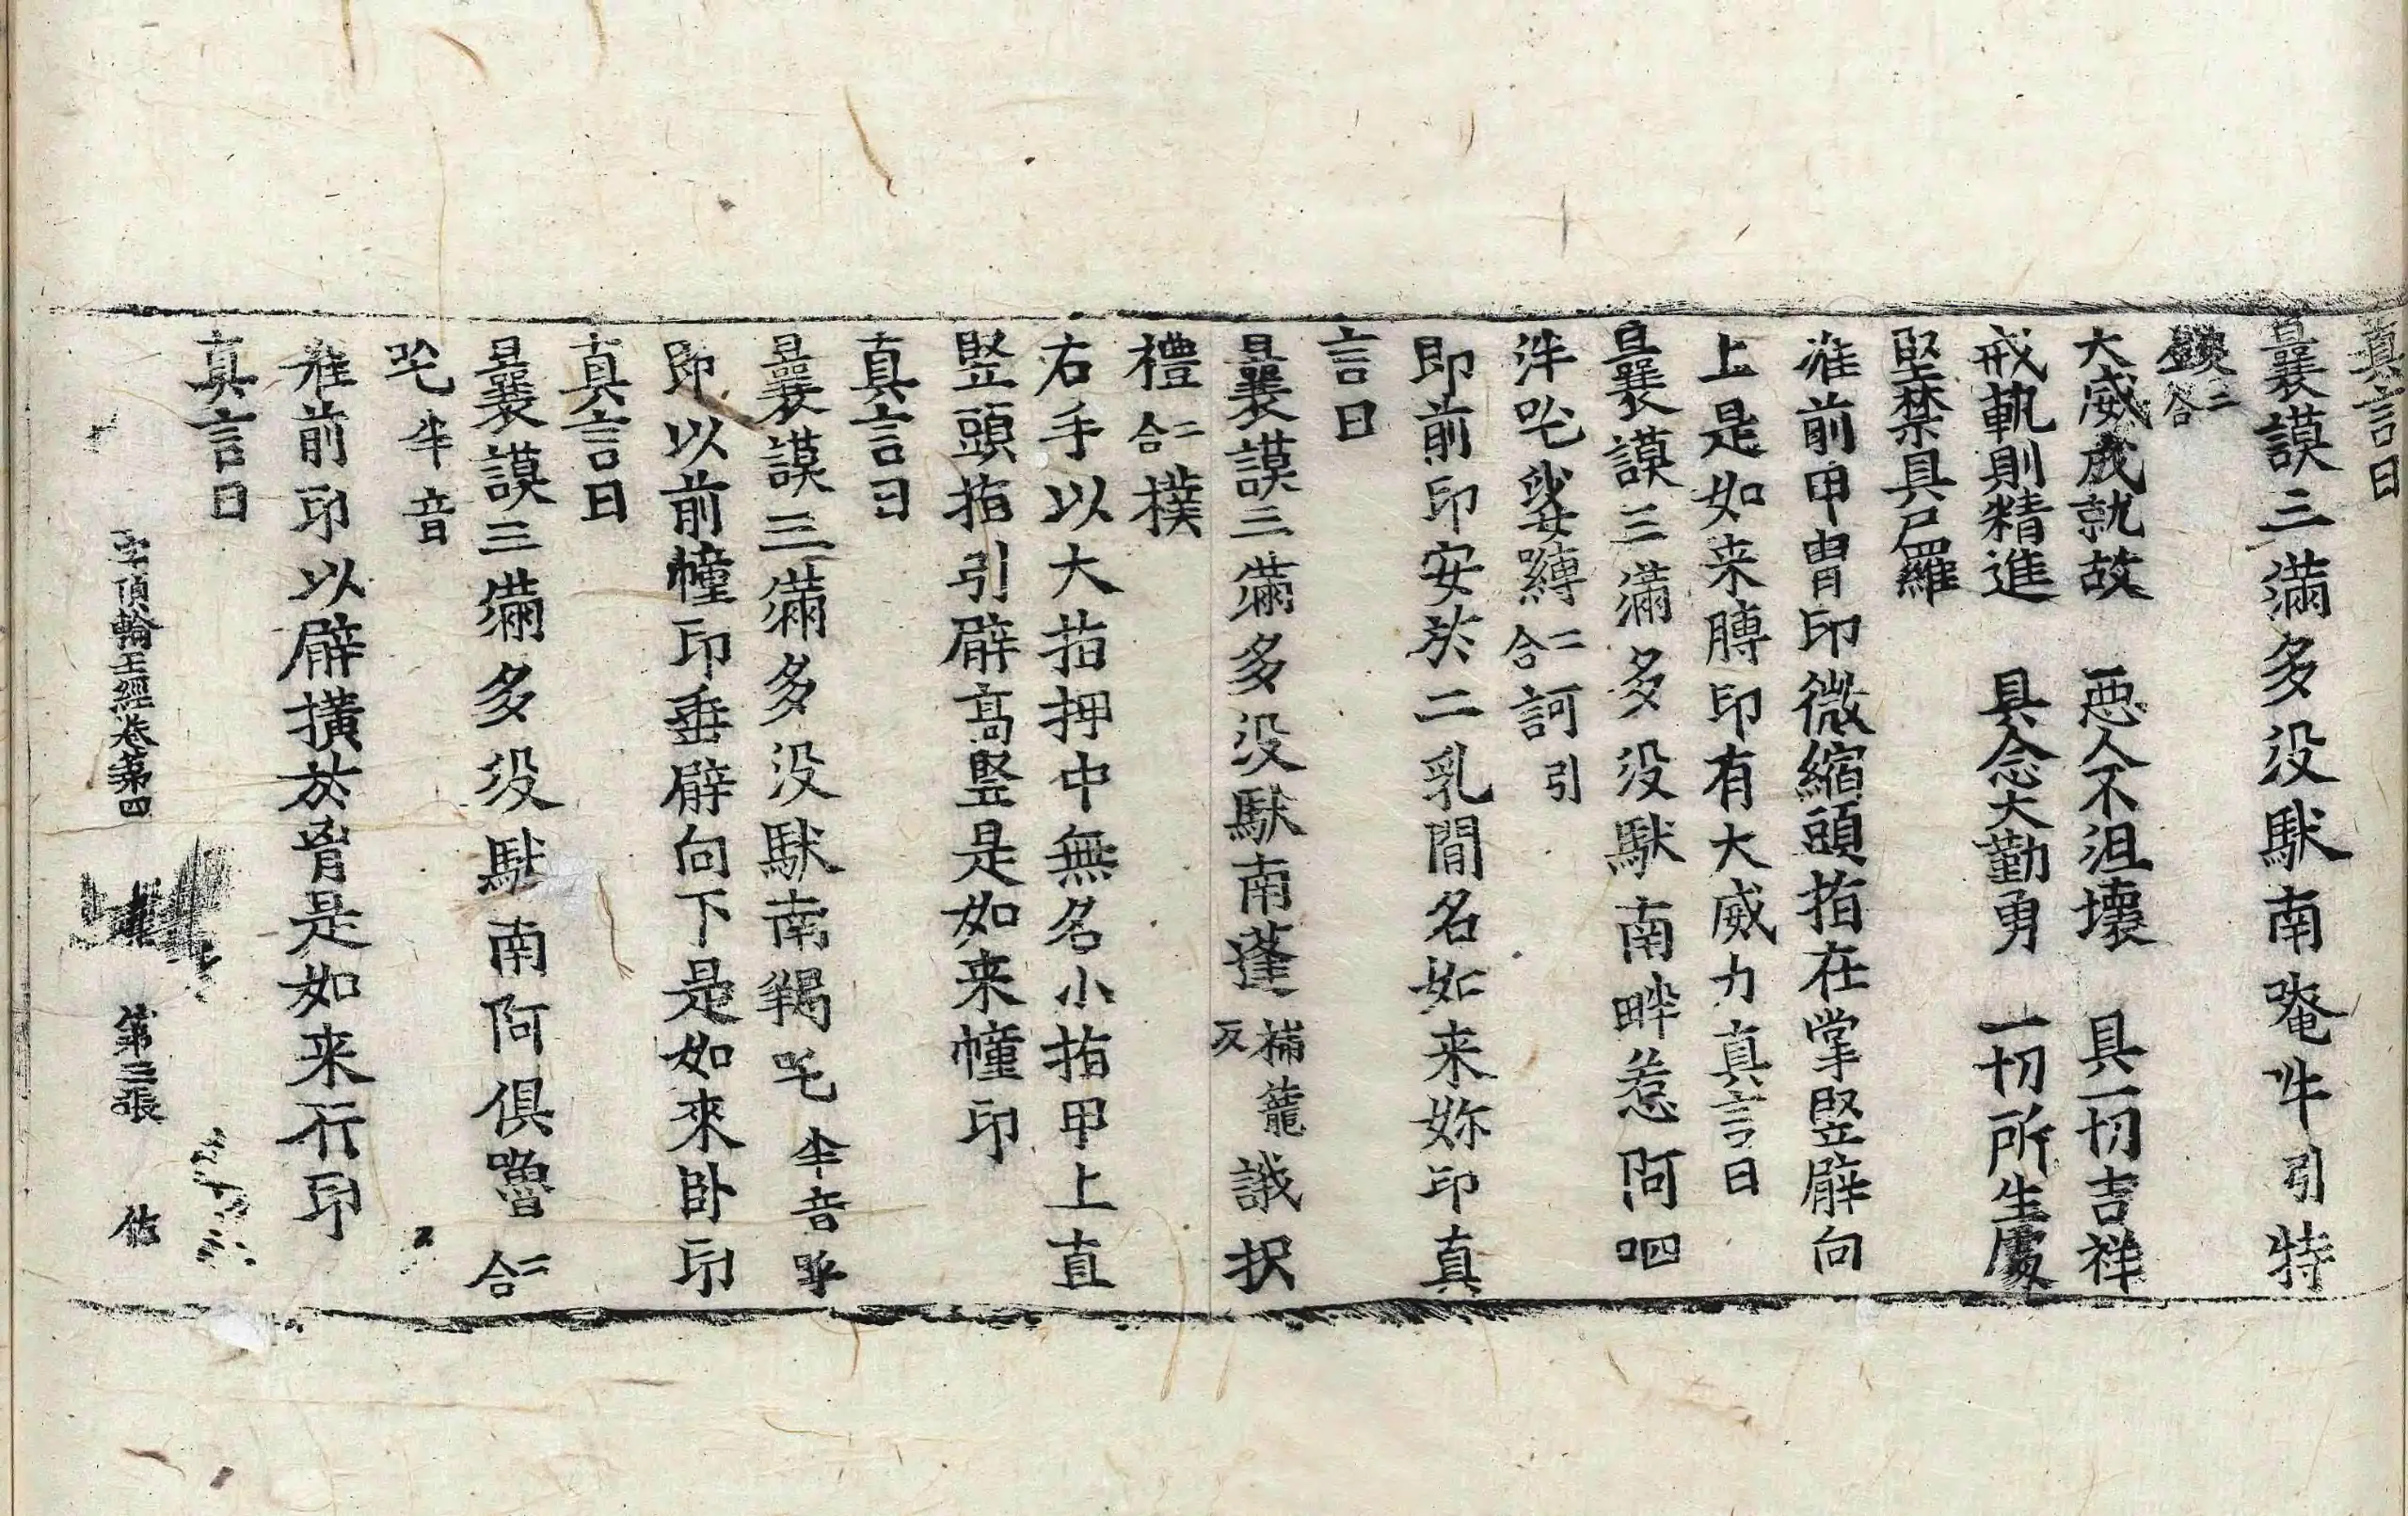 真言曰
曩謨三滿多没馱南唵吽引特
二合
大威成就故　惡人不沮壞　具一切吉祥
戒軌則精進　具念大勤勇　一切所生處
堅禁具尸羅
准前甲冑印微縮頭指在掌竪臂向
上是如来膊印有大威力真言曰
曩謨三滿多没馱南畔惹阿呬
泮吒娑嚩二合訶引
即前印安於二乳間名如来妳印真
言曰
曩謨三滿多没馱南蓬補籠反誐択
禮二合撲
右手以大指押中無名小指甲上直
竪頭指引臂高竪是如来幢印
真言曰
曩謨三滿多没馱南羯吒半音
即以前幢印垂臂向下是如來卧印
真言曰
曩謨三滿多没馱南阿俱嚕二合
吒半音
准前印以臂横於胷是如来行印
真言曰
字頂輪王經卷第四　第三張　佑